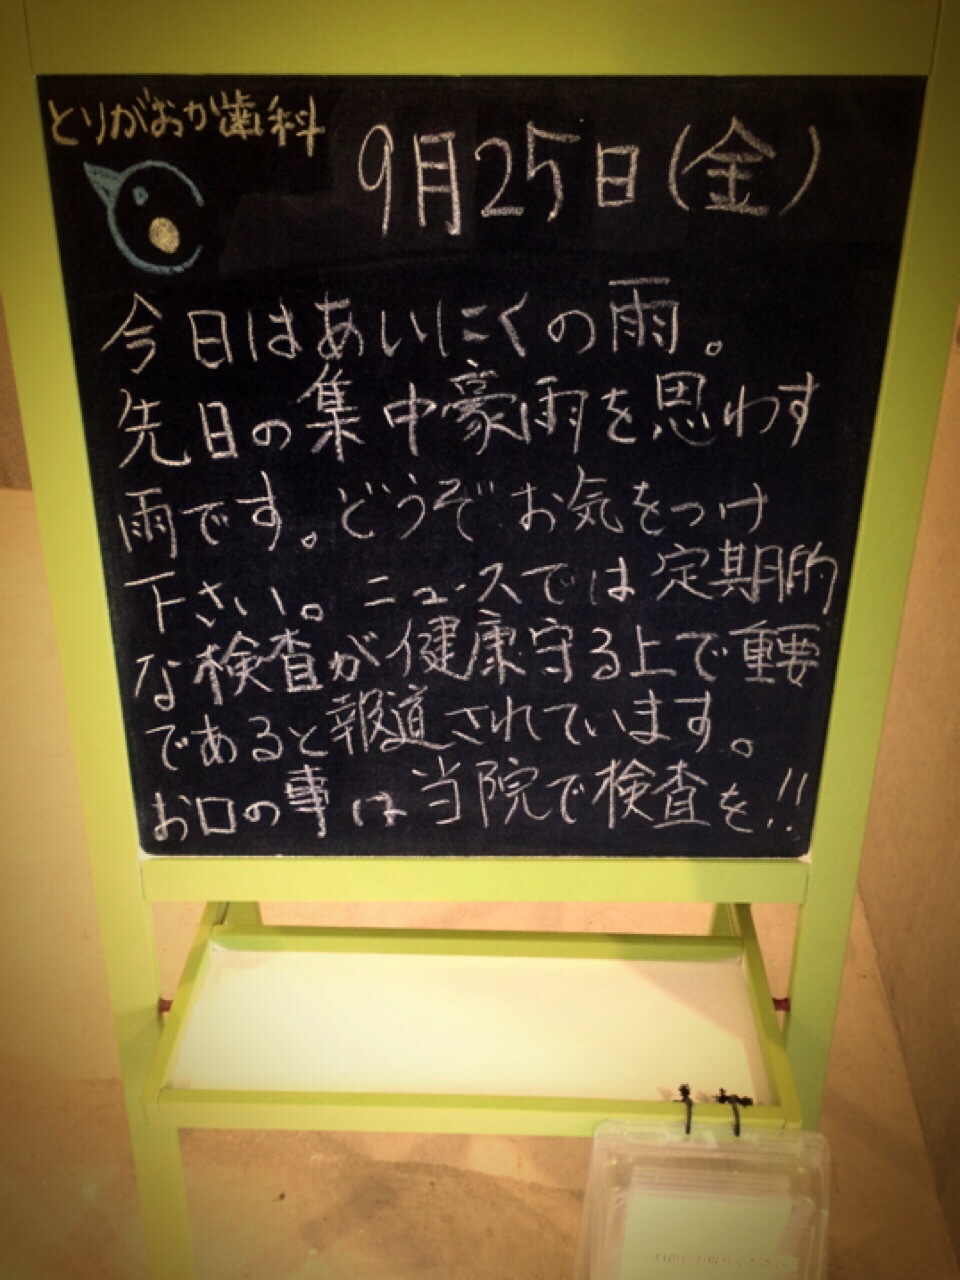 とりがおか歯科
9月25日(金)
今日はあいにくの雨。
先日の集中豪雨を思わす
雨です。どうぞお気をつけ
下さい。ニュースでは定期的
な検査が健康守る上で重要
であると報道されています。
お口の事は当院で検査を!!